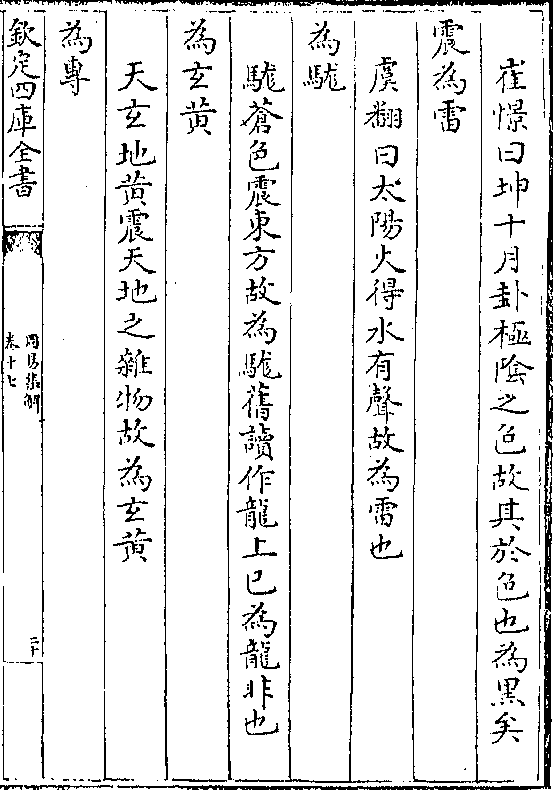 崔憬曰坤十月卦極陰之色故其於色也為黑矣
震為雷
虞翻曰太陽火得水有聲故為雷也
為駹
駹蒼色震東方故為駹舊讀作龍上已為龍非也
為玄黃
天玄地黃震天地之雜物故為玄黃
為專
欽定四庫全書
周易集解
卷十七
二十